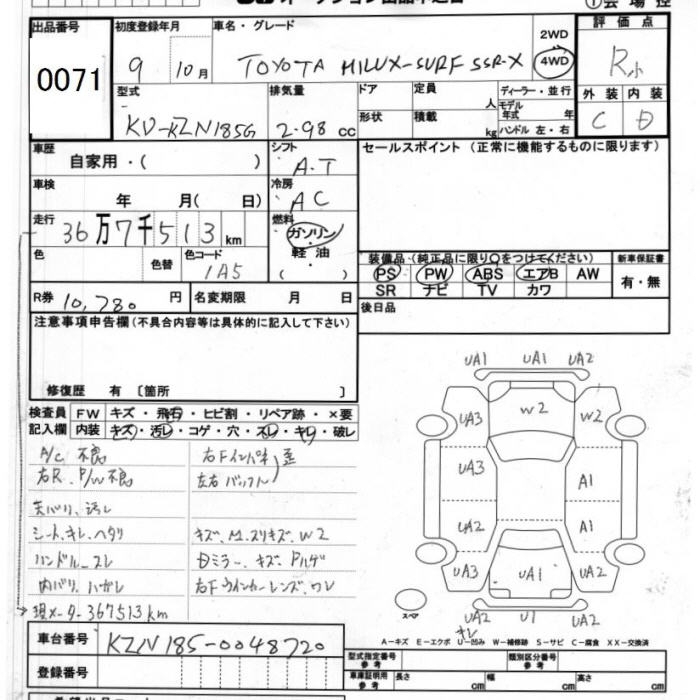 出品番号
0071
初度登録年月
9年 10月
車名・グレード
TOYOTA HILUX-SURF SSR-X
2WD
4WD
評価点
R小
型式
KD-KZN185G
排気量
2.98 cc
ドア
定員
人
形状
積載
kg
ディーラー・並行
モデル年式 年
ハンドル 左・右
外装 内装
C D
車歴
自家用・( )
シフト
A.T
セールスポイント (正常に機能するものに限ります)
車検
年 月( 日)
冷房
AC
走行
36万7千513 km
燃料
ガソリン
・
軽油
色
色替
色コード
1A5
装備品 (純正品に限り〇をつけてください)
PS PW ABS エアB AW
SR ナビ TV カワ
新車保証書
有・無
R券 10,780 円
名変期限 月 日
後日品
注意事項申告欄 (不具合内容等は具体的に記入して下さい)
修復歴 有 [箇所 ]
検査員 FW キズ・飛石・ヒビ割・リペア跡・×要
記入欄 内装 キズ・汚レ・コゲ・穴・スレ・キレ・破レ
A/C 不良
右R. P/W不良
天バリ、汚レ
シート、キレ、ヘタリ
ハンドル スレ
内バリ、ハガレ
現メーター 367513km
右Fインパネ
左右バッフル
歪
キズ、M.スリキズ、W2
Dミラー、キズ、Pハゲ
右Fウインカーレンズ、ワレ
UA1 UA1 UA2
UA3 W2 W2
UA3 A1
UA2 A1
UA3 UA1 UA2
スペア
UA2 U1 UA2
A-キズ E-エクボ U-凹み W-補修跡 S-サビ C-腐食 XX-交換済
車台番号
KZN185-0048720
登録番号
型式指定番号 参考
類別区分番号 参考
車庫証明用 参考
長さ cm
幅 cm
高さ cm